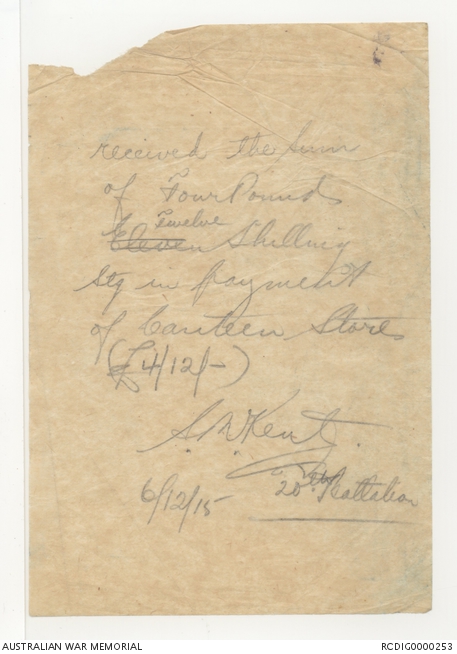 received the sum
of Four Pound
Twelve
Eleven Shilling
Stg in payment
of Canteen Stores
(£4/12/-)
S. M. Kent.
20th Battalion
6/12/15
AUSTRALIAN WAR MEMORIAL
RCDIG0000253